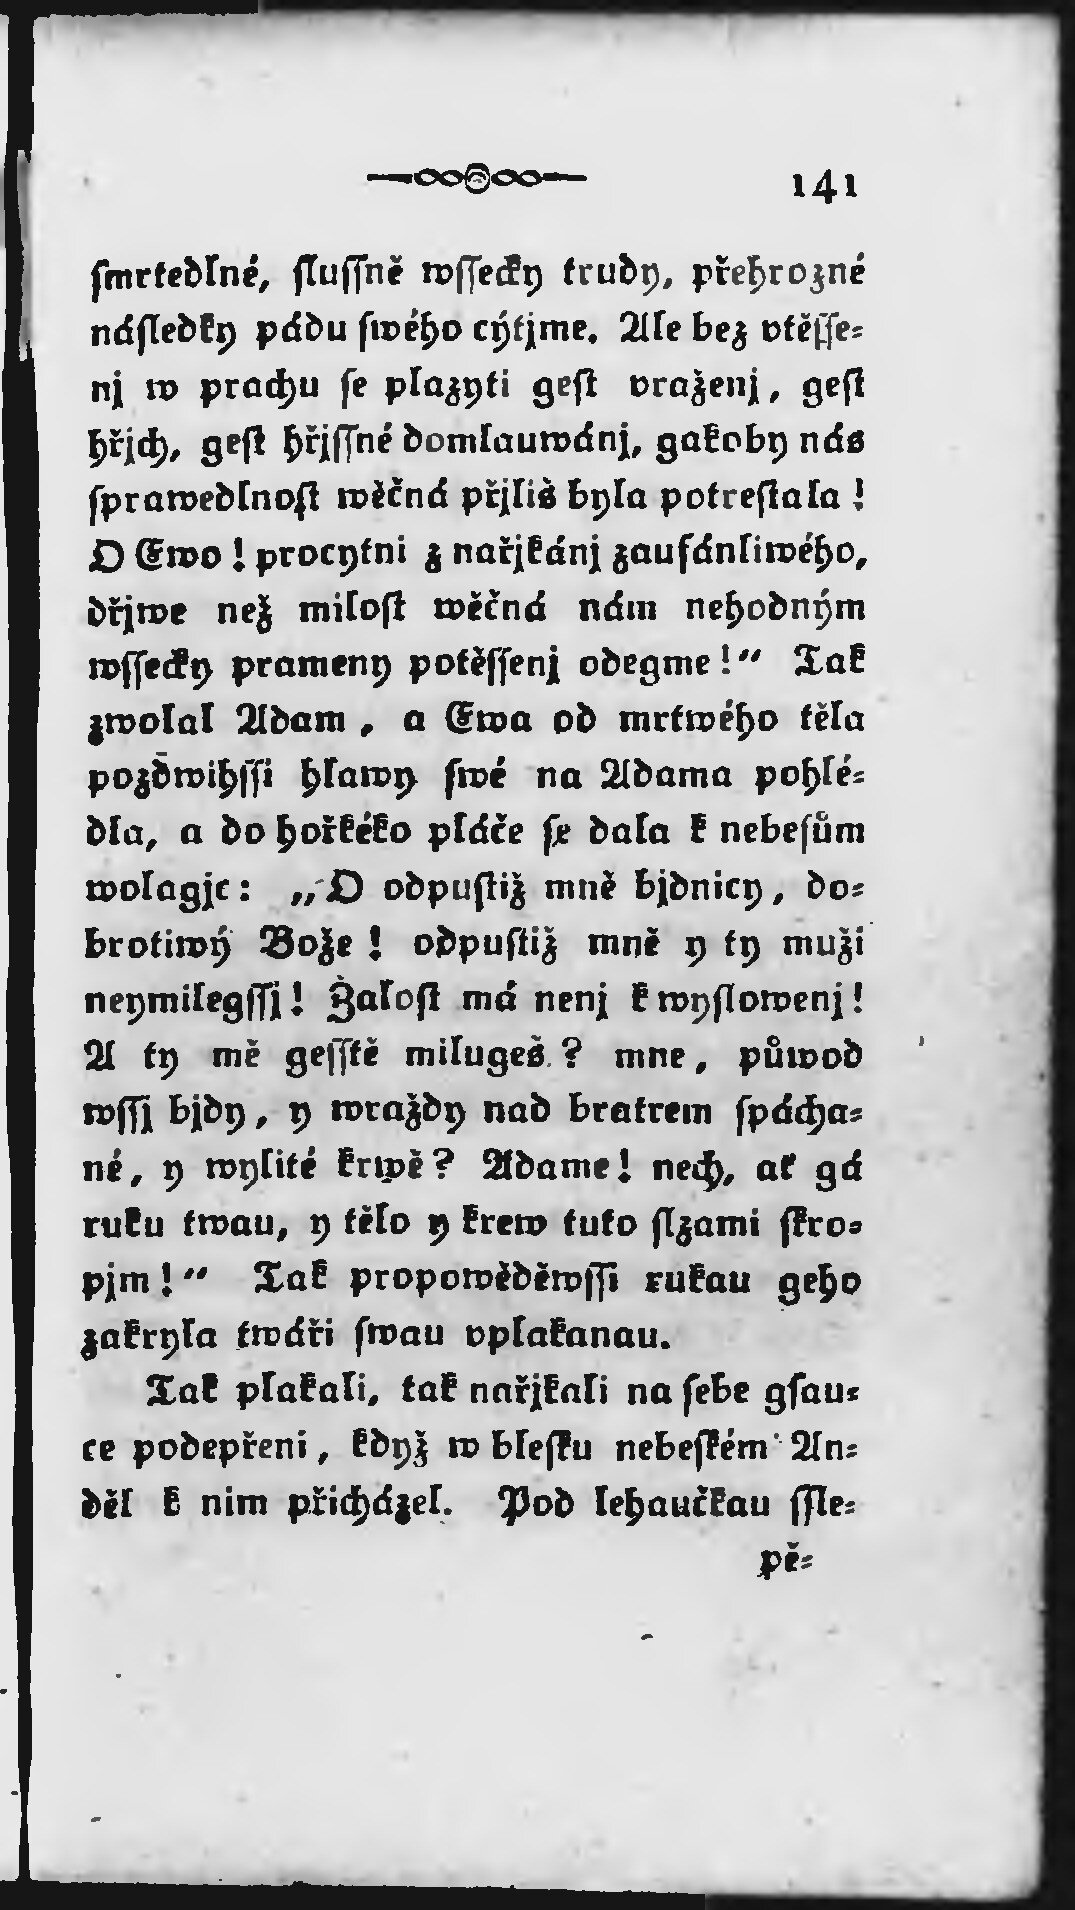 141
ſmrtedlné, ſluſſně wſſecky trudy, přehrozné
náſledky pádu ſwého cýtjme. Ale bez vtěſſe⸗
nj w prachu ſe plazyti geſt vraženj, geſt
hřjch, geſt hřjſſné domlauwánj, gakoby nás
ſprawedlnoſt wěčná přjliš byla potreſtala!
O Ewo! procytni z nařjkánj zaufánliwého,
dřjwe než miloſt wěčná nám nehodným
wſſecky prameny potěſſenj odegme!“ Tak
zwolal Adam, a Ewa od mrtwého těla
pozdwihſſi hlawy ſwé na Adama pohlé⸗
dla, a do hořkéko pláče ſe dala k nebeſům
wolagjc: „O odpuſtiž mně bjdnicy, do⸗
brotiwý Bože! odpuſtiž mně y ty muži
neymilegſſj! Žaloſt má nenj k wyſlowenj!
A ty mě geſſtě milugeš? mne, půwod
wſſj bjdy, y wraždy nad bratrem ſpácha⸗
né, y wylité krwě? Adame! nech, ať gá
ruku twau, y tělo y krew tuto ſlzami ſkro⸗
pjm!“ Tak propowěděwſſi rukau geho
zakryla twáři ſwau vplakanau.
Tak plakali, tak nařjkali na ſebe gſau⸗
ce podepřeni, když w bleſku nebeſkém An⸗
děl k nim přicházel. Pod lehaučkau ſſle⸗
pě⸗